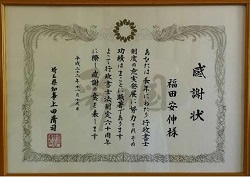 感謝状
福田安伸様
あなたは長年にわたり行政書士
制度の充実発展に努力されその
功績はまことに顕著であります
よって行政書士法制定六十周年
に際し感謝の意を表します
平成二十二年十一月
埼玉県知事上田清司